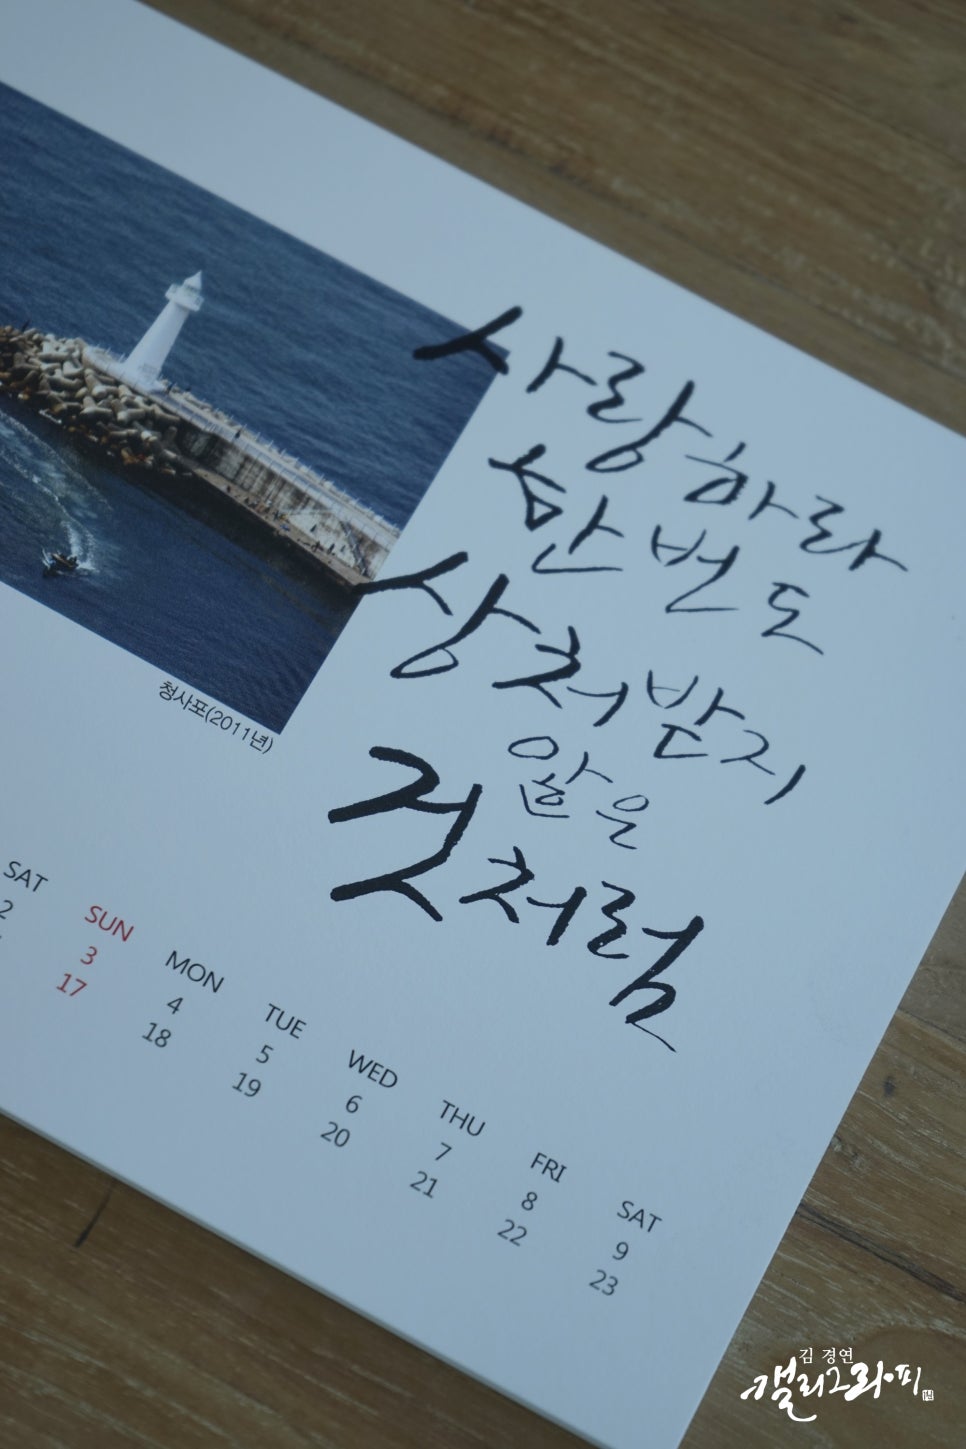 사랑하라
한번도
상처받지
않은
것처럼
청사포(2011년)
SAT SUN MON TUE WED THU FRI SAT
2 3 4 5 6 7 8 9
17 18 19 20 21 22 23
김 경연
캘리그라피